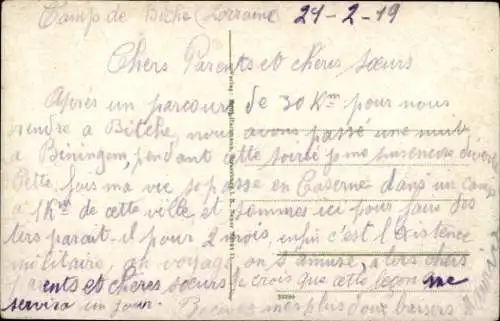 Camp de Bitche (Lorraine) 21-2-19
Chers Parents et chères sœurs
Après un parcours de 30 Km pour nous
rendre a Bitche, nous avons passé une nuit
a Biningem, pendant cette soirée je me suis encore
Cette fois ma vie se passe en Caserne dans un camp
a 1 Km de cette ville et sommes ici pour faire des
tirs parait-il pour 2 mois, enfin c'est l'existence
militaire, on voyage, on s'amuse, a lors chers
parents et chères sœurs je crois que cette leçon me
servira un jour. Recevez mes plus doux baisers